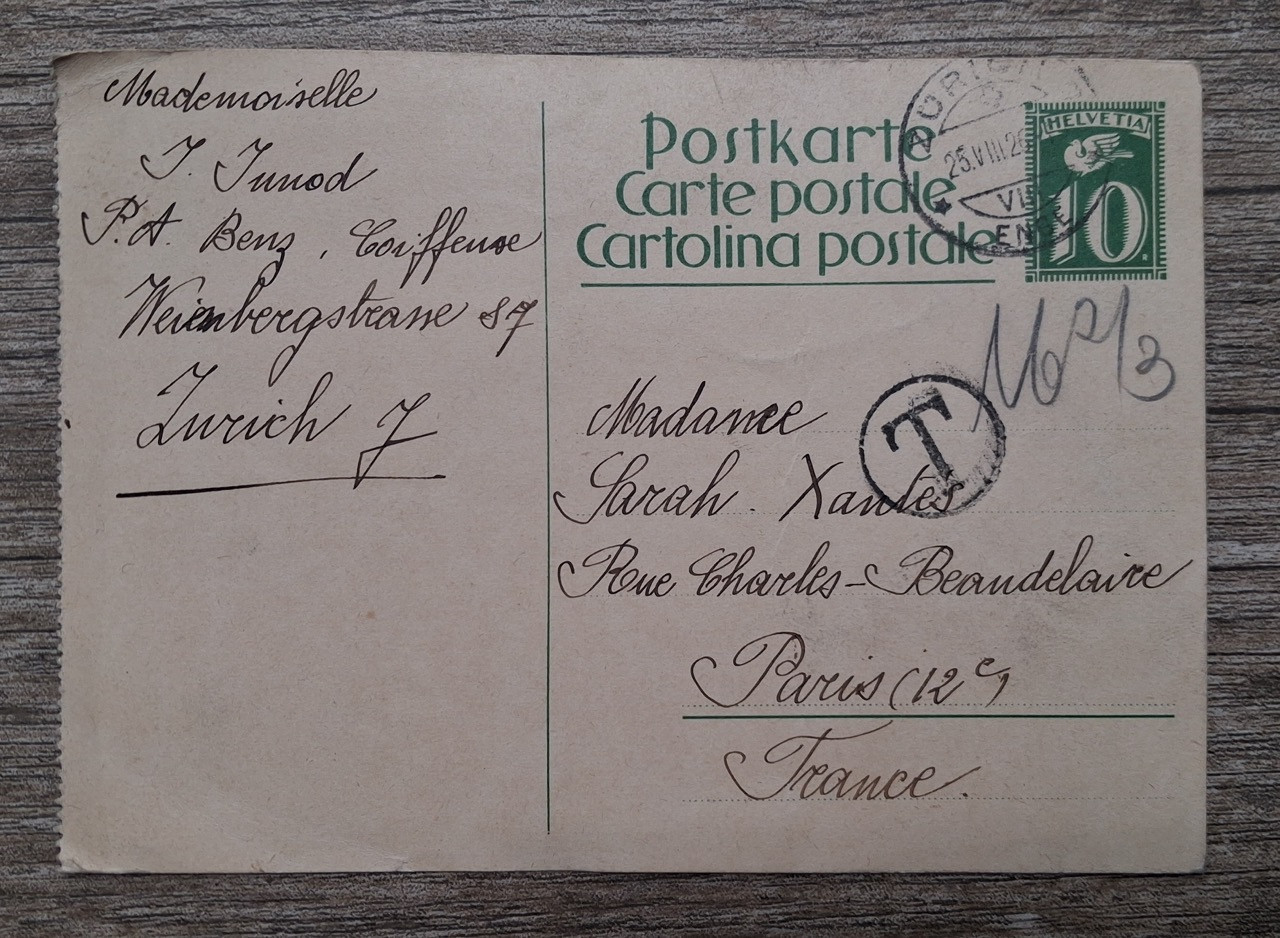 Mademoiselle
J. Junod
P. A. Benz, Coiffeuse
Weinbergstrasse 87
Zurich 7
Postkarte
Carte postale
Cartolina postale
ZÜRICH
25.VIII.26
VII
ENGE
HELVETIA
10
16 2/3
T
Madame
Sarah. Xantès
Rue Charles-Beaudelaire
Paris (12e)
France.